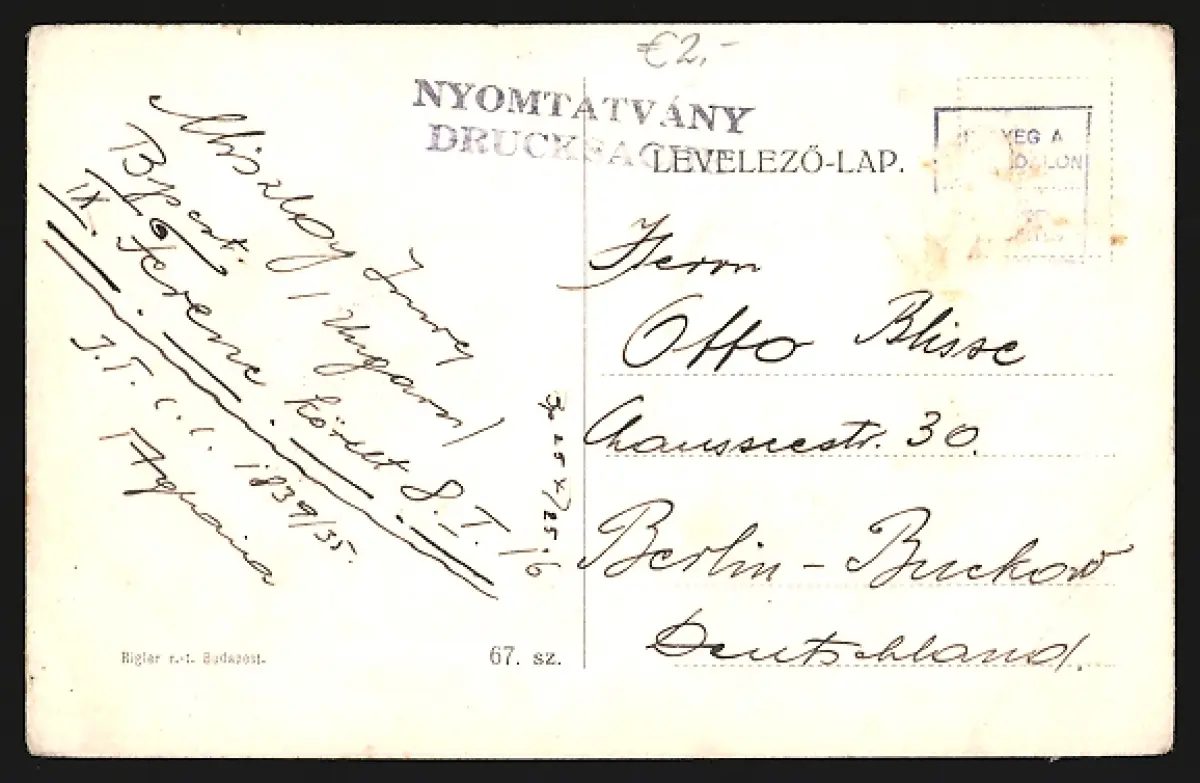 €2,-
NYOMTATVÁNY
DRUCKSACHE
LEVELEZŐ-LAP.
BÉLYEG A
OLDALON
Imre
Bpest. / Ungarn /
IX. Ferenc körút 8. I. 16
J. T. C. C. 1839/35.
Herrn
Otto Blisse
Chausseestr. 30.
Berlin - Buckow
Deutschland.
Rigler r.-t. Budapest.
67. sz.